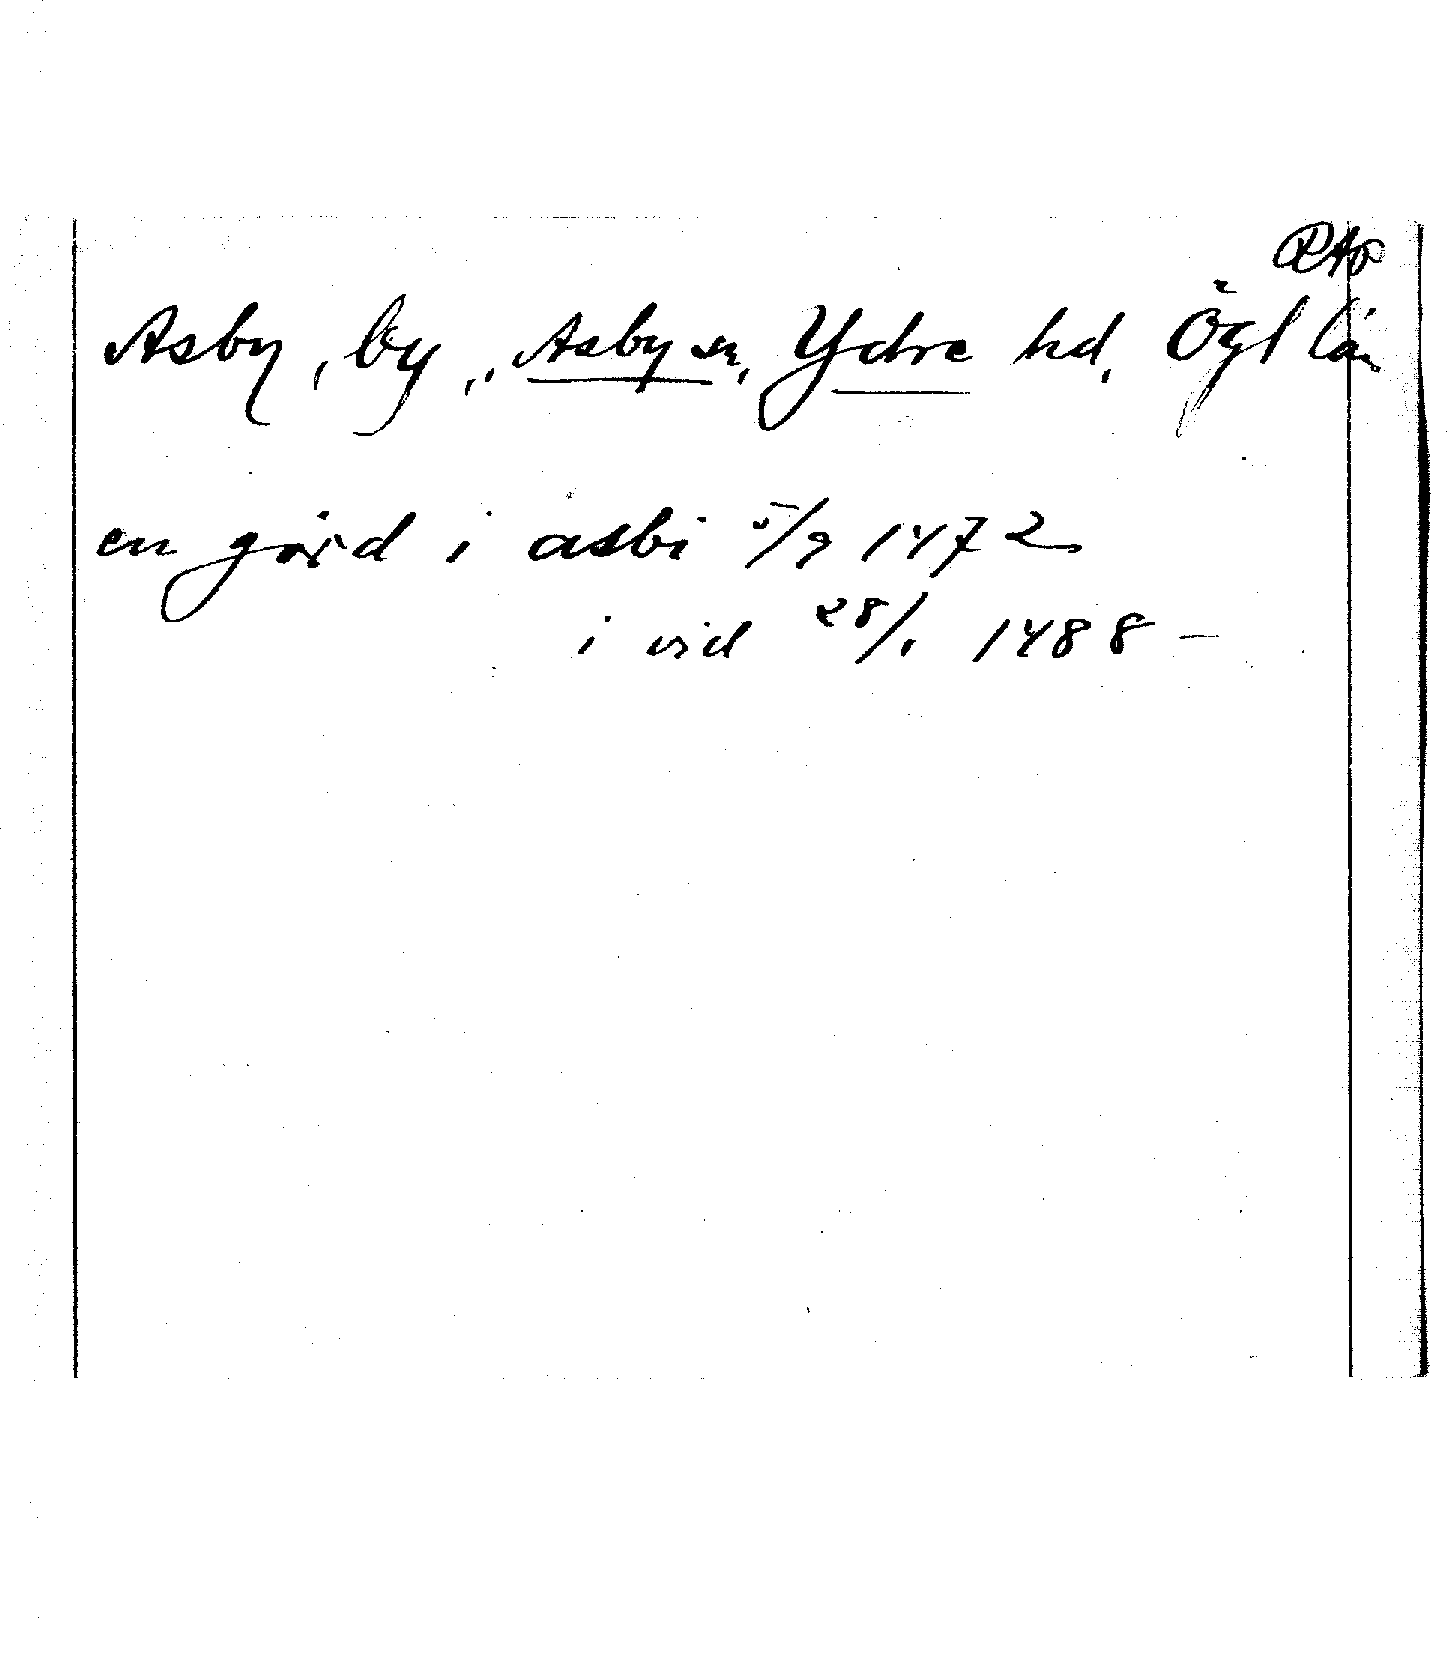 RAp
Asby, by, Asby sn, Ydre hd, Ögl län
en gård i asbi 5/9 1472
i vid 28/1 1488 –